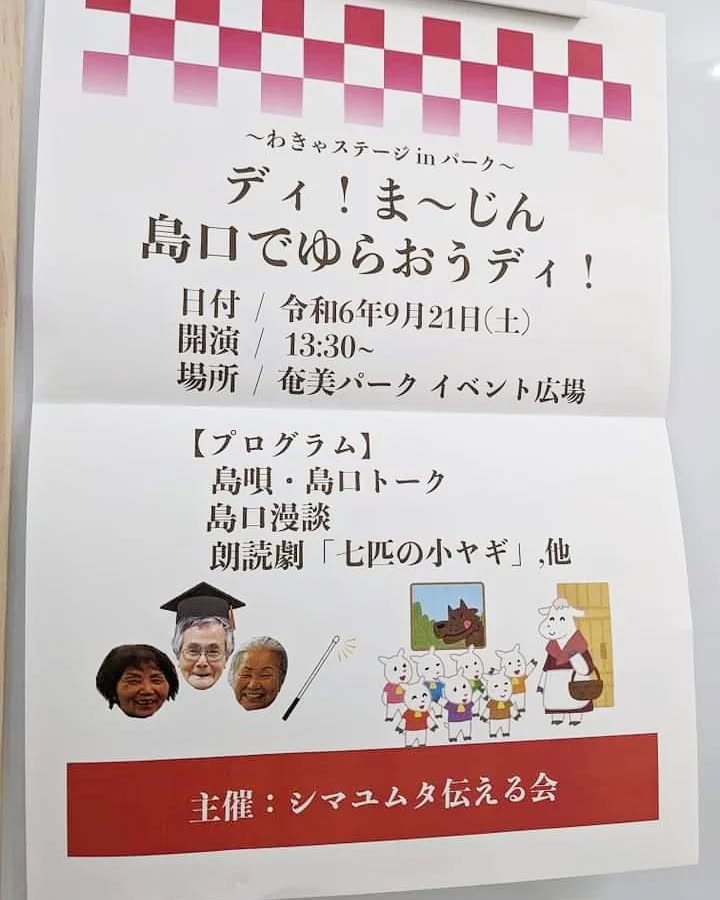 ～わきゃステージ in パーク～
ディ！ま～じん
島口でゆらおうディ！
日付 / 令和6年9月21日(土)
開演 / 13:30~
場所 / 奄美パーク イベント広場
【プログラム】
島唄・島口トーク
島口漫談
朗読劇「七匹の小ヤギ」,他
主催：シマユムタ伝える会